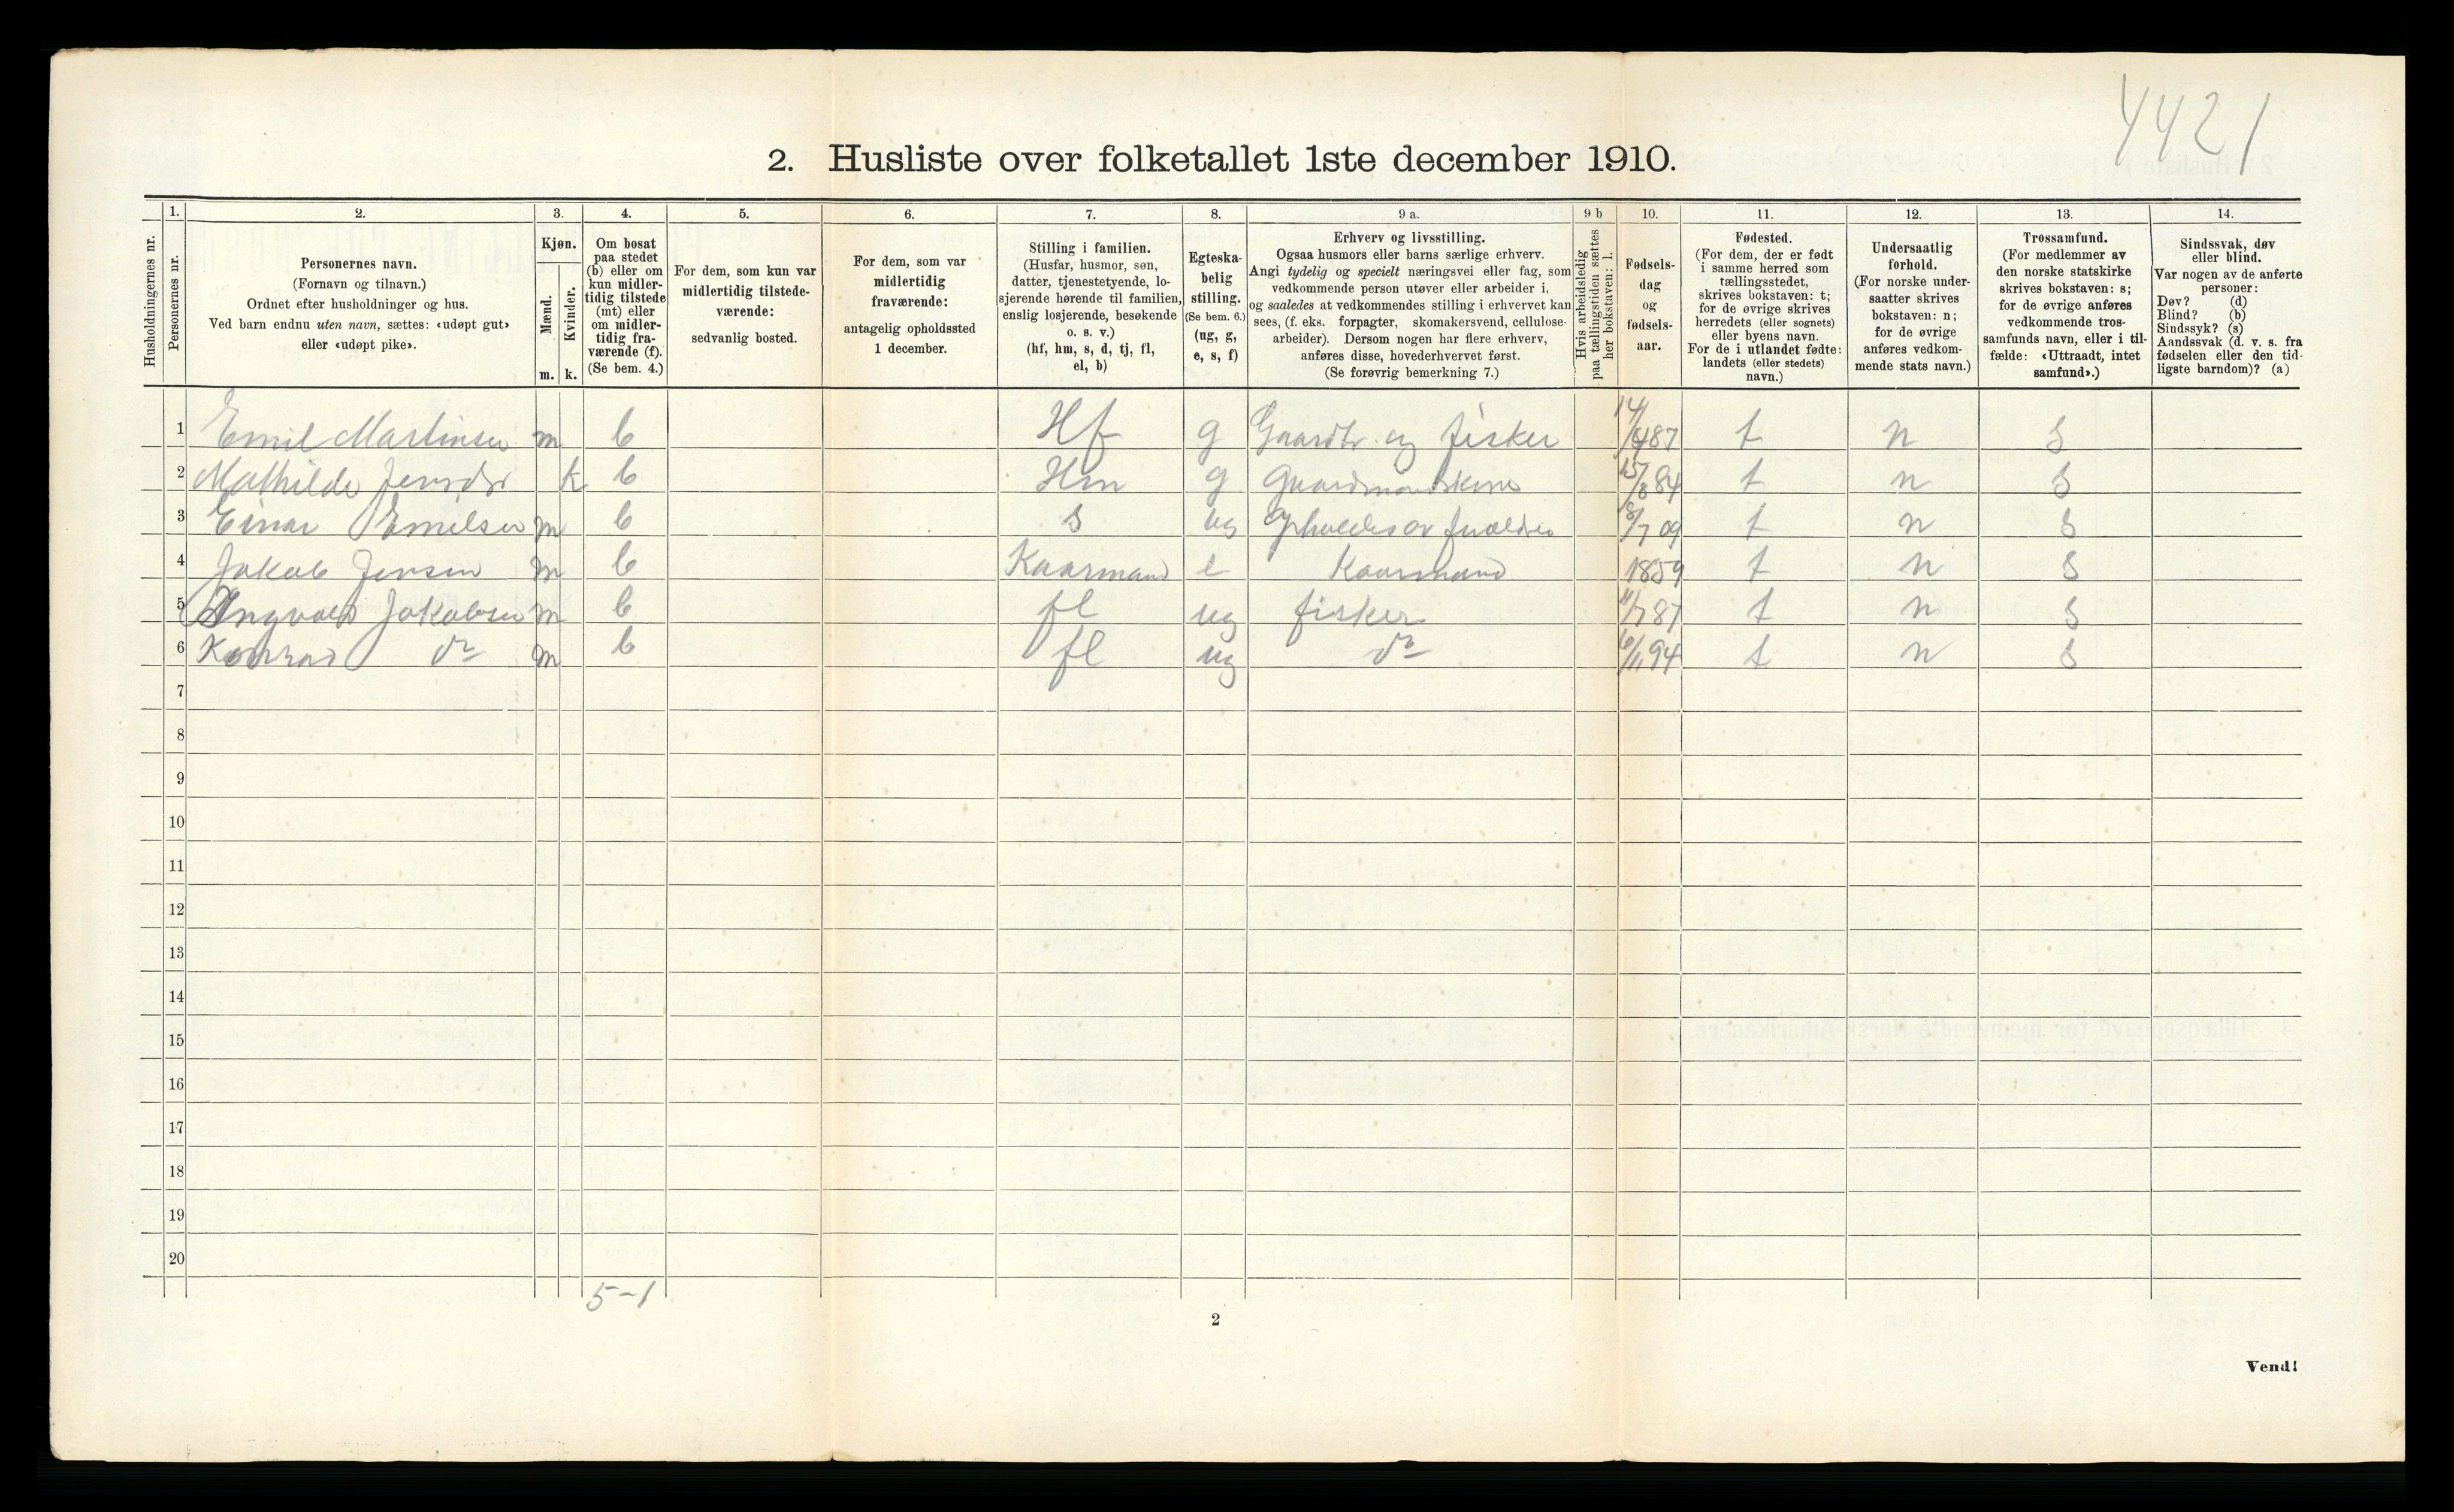 4421
2. Husliste over folketallet 1ste december 1910.
1. 2. 3. 4. 5. 6. 7. 8. 9 a. 9 b 10. 11. 12. 13. 14.
Husholdningernes nr.
Personernes nr.
Personernes navn.
(Fornavn og tilnavn.)
Ordnet efter husholdninger og hus.
Ved barn endnu uten navn, sættes: «udøpt gut»
eller «udøpt pike».
Kjøn.
Mænd.
Kvinder.
m. k.
Om bosat
paa stedet
(b) eller om
kun midler-
tidig tilstede
(mt) eller
om midler-
tidig fra-
værende (f).
(Se bem. 4.)
For dem, som kun var
midlertidig tilstede-
værende:
sedvanlig bosted.
For dem, som var
midlertidig
fraværende:
antagelig opholdssted
1 december.
Stilling i familien.
(Husfar, husmor, søn,
datter, tjenestetyende, lo-
sjerende hørende til familien,
enslig losjerende, besøkende
o. s. v.)
(hf, hm, s, d, tj, fl,
el, b)
Egteska-
belig
stilling.
(Se bem. 6.)
(ug, g,
e, s, f)
Erhverv og livsstilling.
Ogsaa husmors eller barns særlige erhverv.
Angi tydelig og specielt næringsvei eller fag, som
vedkommende person utøver eller arbeider i,
og saaledes at vedkommendes stilling i erhvervet kan
sees, (f. eks. forpagter, skomakersvend, cellulose-
arbeider). Dersom nogen har flere erhverv,
anføres disse, hovederhvervet først.
(Se forøvrig bemerkning 7.)
Hvis arbeidsledig
paa tællingstiden sættes
her bokstaven: l.
Fødsels-
dag
og
fødsels-
aar.
Fødested.
(For dem, der er født
i samme herred som
tællingsstedet,
skrives bokstaven: t;
for de øvrige skrives
herredets (eller sognets)
eller byens navn.
For de i utlandet fødte:
landets (eller stedets)
navn.)
Undersaatlig
forhold.
(For norske under-
saatter skrives
bokstaven: n;
for de øvrige
anføres vedkom-
mende stats navn.)
Trossamfund.
(For medlemmer av
den norske statskirke
skrives bokstaven: s;
for de øvrige anføres
vedkommende tros-
samfunds navn, eller i til-
fælde: «Uttraadt, intet
samfund».)
Sindssvak, døv
eller blind.
Var nogen av de anførte
personer:
Døv? (d)
Blind? (b)
Sindssyk? (s)
Aandssvak (d. v. s. fra
fødselen eller den tid-
ligste barndom)? (a)
1 Emil Martinsen m b Hf g Gaardbr. og fisker 14/487 t n s
2 Mathilde Jensdr k b Hm g Gaardmandskone 15/884 t n s
3 Einar Emilsen m b s ug 8/7 09 t n s
4 Jakob Jensen m b Kaarmand e Kaarmand 1859 t n s
5 Ingvald Jakobsen m b fl ug fisker 11/787 t n s
6 Konrad do m b fl ug do 6/11 94 t n s
7
8
9
10
11
12
13
14
15
16
17
18
19
20
5-1
2
Vend!